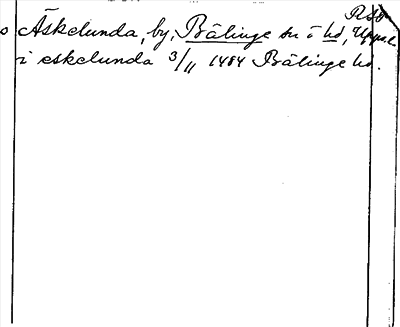 Äskelunda, by, Bälinge sn o hd, Upps. l.
i eskelunda 3/11 1484 Bälinge hd.